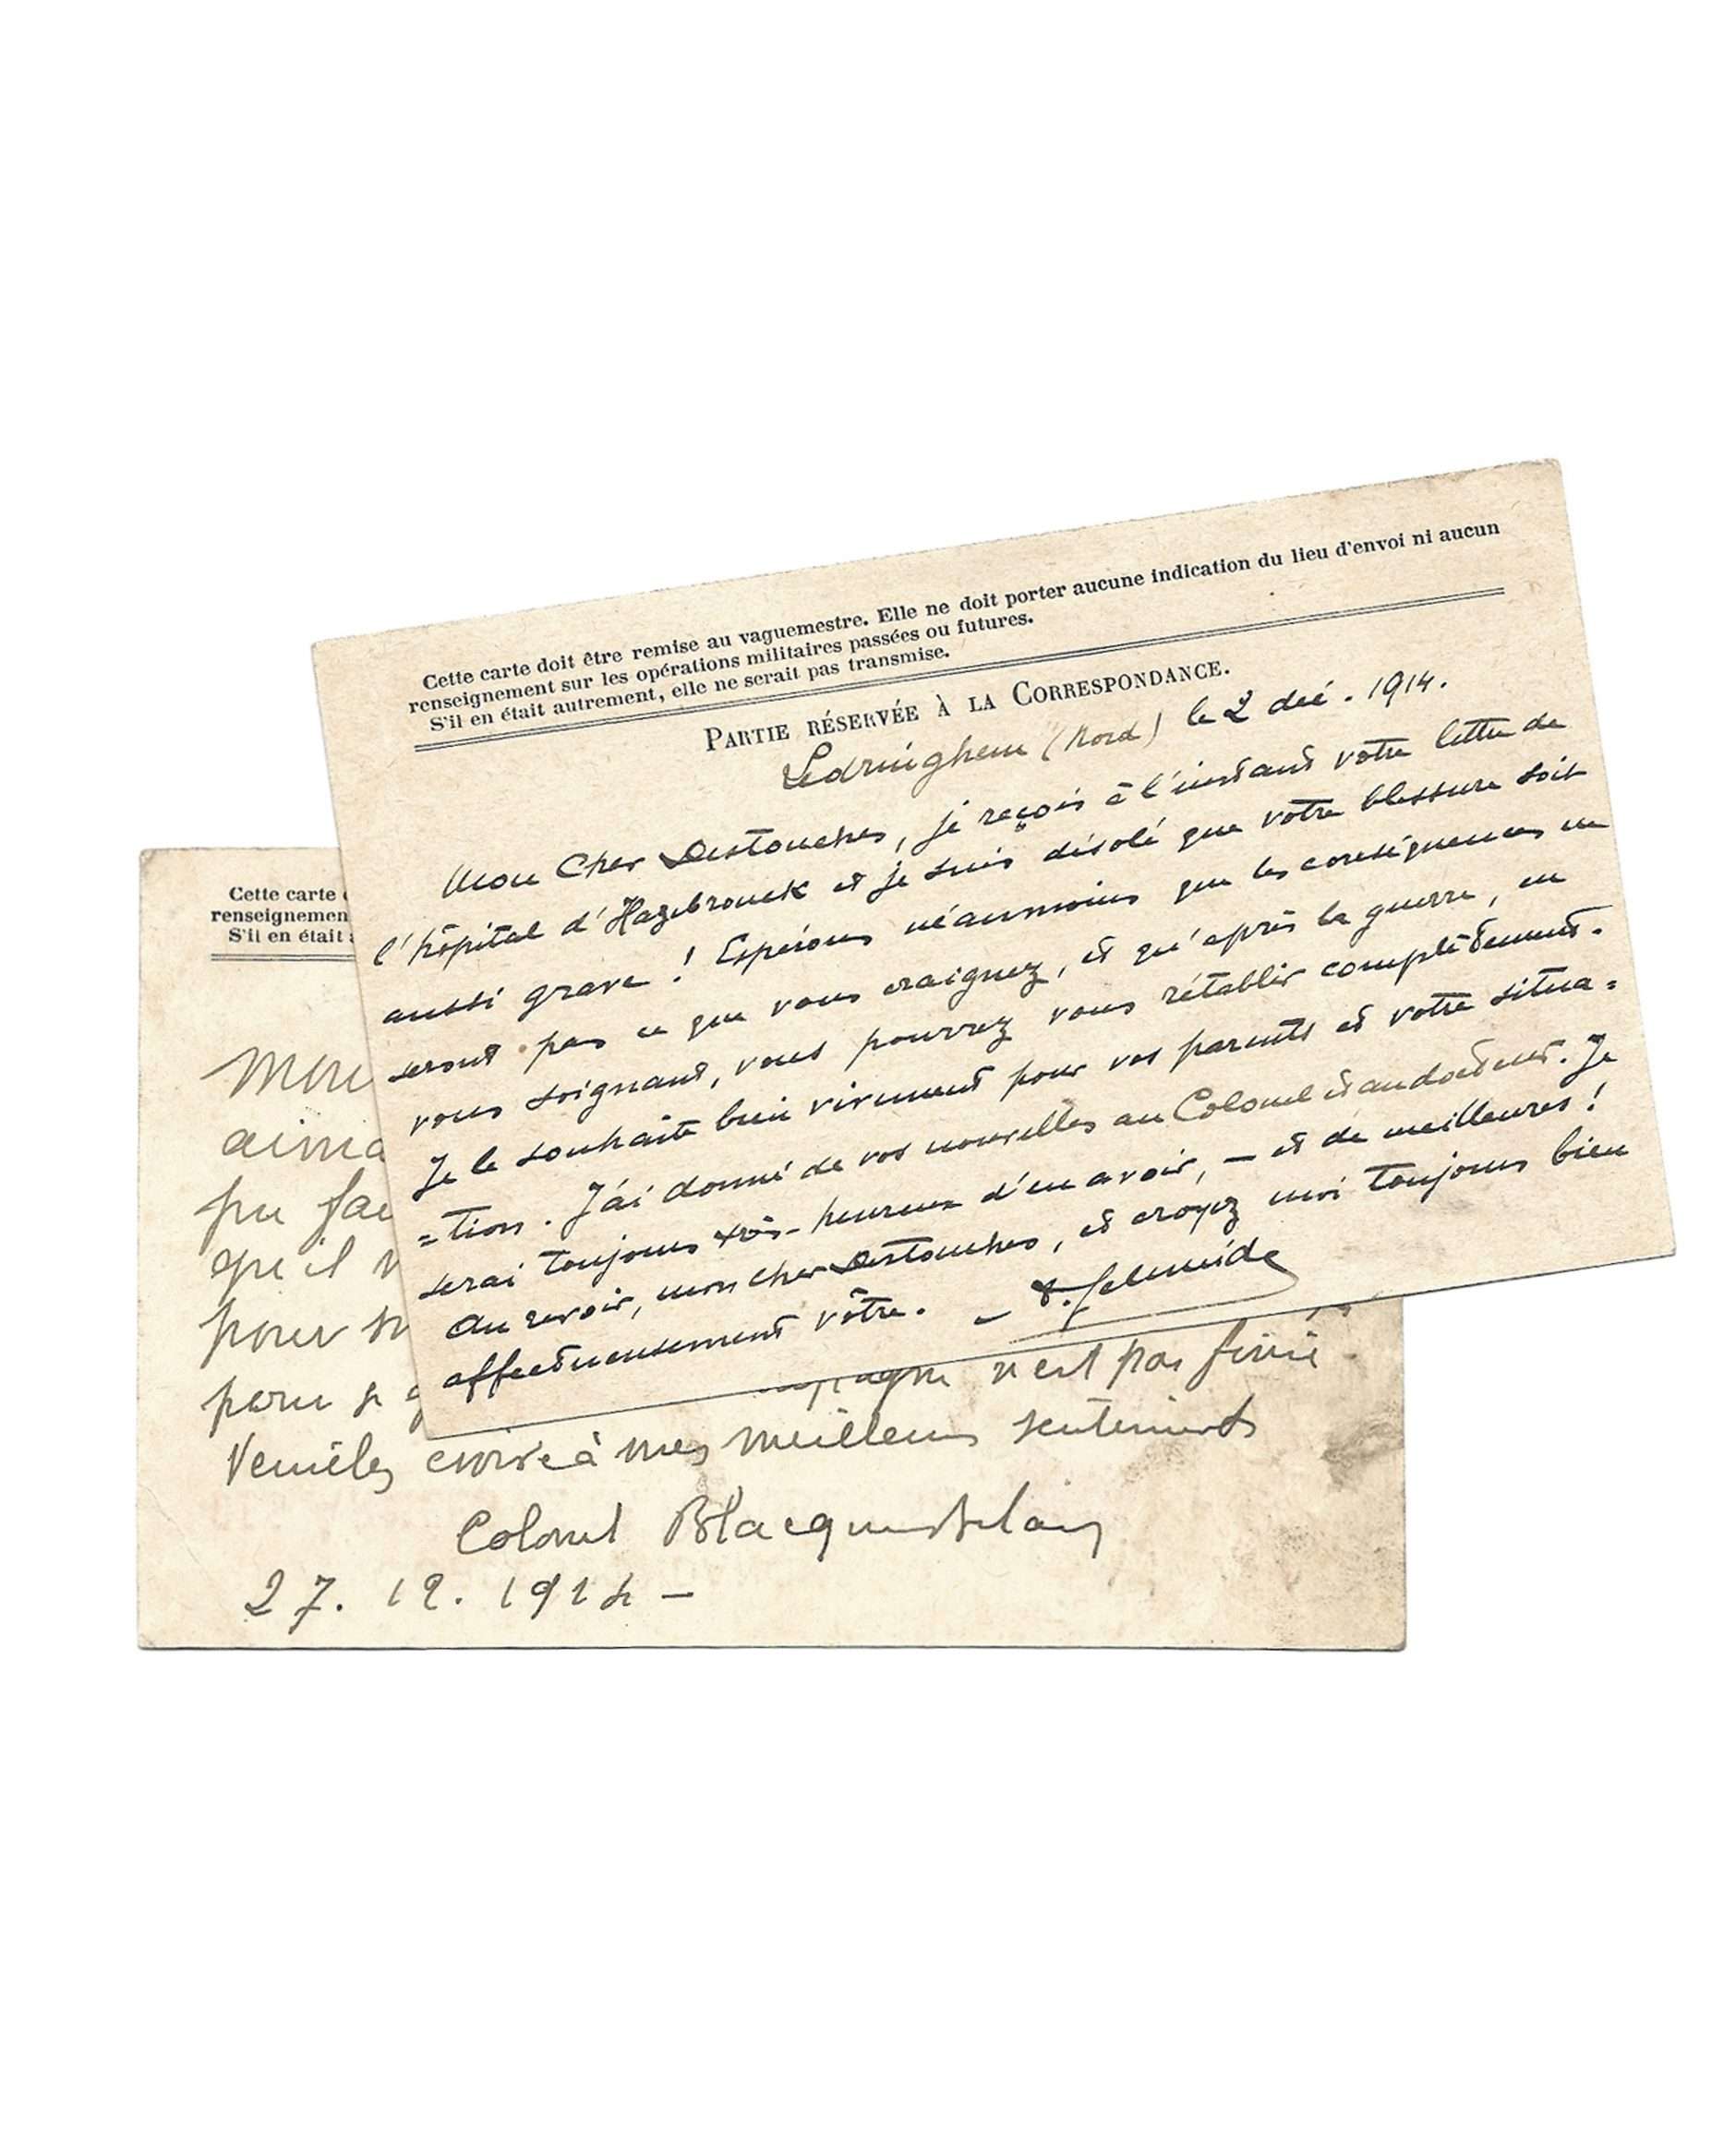 Cette carte doit être remise au vaguemestre. Elle ne doit porter aucune indication du lieu d'envoi ni aucun
renseignement sur les opérations militaires passées ou futures.
S'il en était autrement, elle ne serait pas transmise.
PARTIE RÉSERVÉE À LA CORRESPONDANCE.
Ledringhem (Nord) le 2 déc. 1914.
Mon Cher Destouches, je reçois à l'instant votre lettre de
l'hôpital d'Hazebrouck et je suis désolé que votre blessure soit
aussi grave ! Espérons néanmoins que les conséquences ne
seront pas ce que vous craignez, et qu'après la guerre, en
vous soignant, vous pourrez vous rétablir complètement.
Je le souhaite bien vivement pour vos parents et votre situa=
=tion. J'ai donné de vos nouvelles au Colonel et au docteur. Je
serai toujours très-heureux d'en avoir, — et de meilleures !
Au revoir, mon cher Destouches, et croyez moi toujours bien
affectueusement vôtre. —
Cette carte
renseignemen
S'il en était
Mon
aima
pu fai
qu'il v
pour
n'est pas finie.
Veuillez croire à mes meilleurs sentiments
Colonel
27. 12. 1914 —